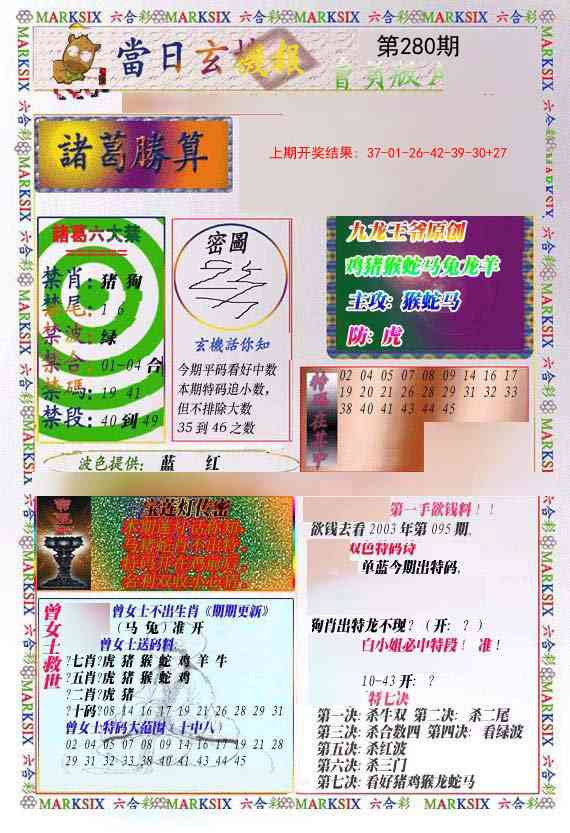 MARKSIX 六合彩 MARKSIX 六合彩 MARKSIX 六合彩 MARKSIX 六合彩 MARKSIX
當日玄機報
第280期
諸葛勝算
上期开奖结果: 37-01-26-42-39-30+27
諸葛六大禁
禁肖: 猪 狗
禁尾: 1 6
禁波: 绿
禁合: 01-04 合
禁碼: 19 41
禁段: 40 到 49
密圖
玄機話你知
今期平码看好中数
本期特码追小数,
但不排除大数
35 到 46 之数
九龙王爷原创
鸡猪猴蛇马兔龙羊
主攻: 猴蛇马
防: 虎
02 04 05 07 08 09 14 16 17
19 20 21 26 28 29 31 32 33
38 40 41 43 44 45
波色提供: 蓝 红
宝莲灯传密
第一手欲钱料!!
欲钱去看 2003 年第 095 期.
双色特码诗
单蓝今期出特码.
狗肖出特龙不现? (开: ?)
白小姐必中特段! 准!
10-43 开: ?
特七决
第一决: 杀牛双 第二决: 杀二尾
第三决: 杀合数四 第四决: 看绿波
第五决: 杀红波
第六决: 杀三门
第七决: 看好猪鸡猴龙蛇马
曾女士救世
曾女士不出生肖《期期更新》
(马 兔) 准 开
曾女士送码料
?七肖?虎 猪 猴 蛇 鸡 羊 牛
?五肖?虎 猪 猴 蛇 鸡
?二肖?虎 猪
?十码?08 14 16 17 19 21 26 28 29 31
曾女士特码大范围 (十中八)
02 04 05 07 08 09 14 16 17 19 21 28
29 31 32 33 38 40 41 43 44 45
MARKSIX 六合彩 MARKSIX 六合彩 MARKSIX 六合彩 MARKSIX 六合彩 MARKSIX